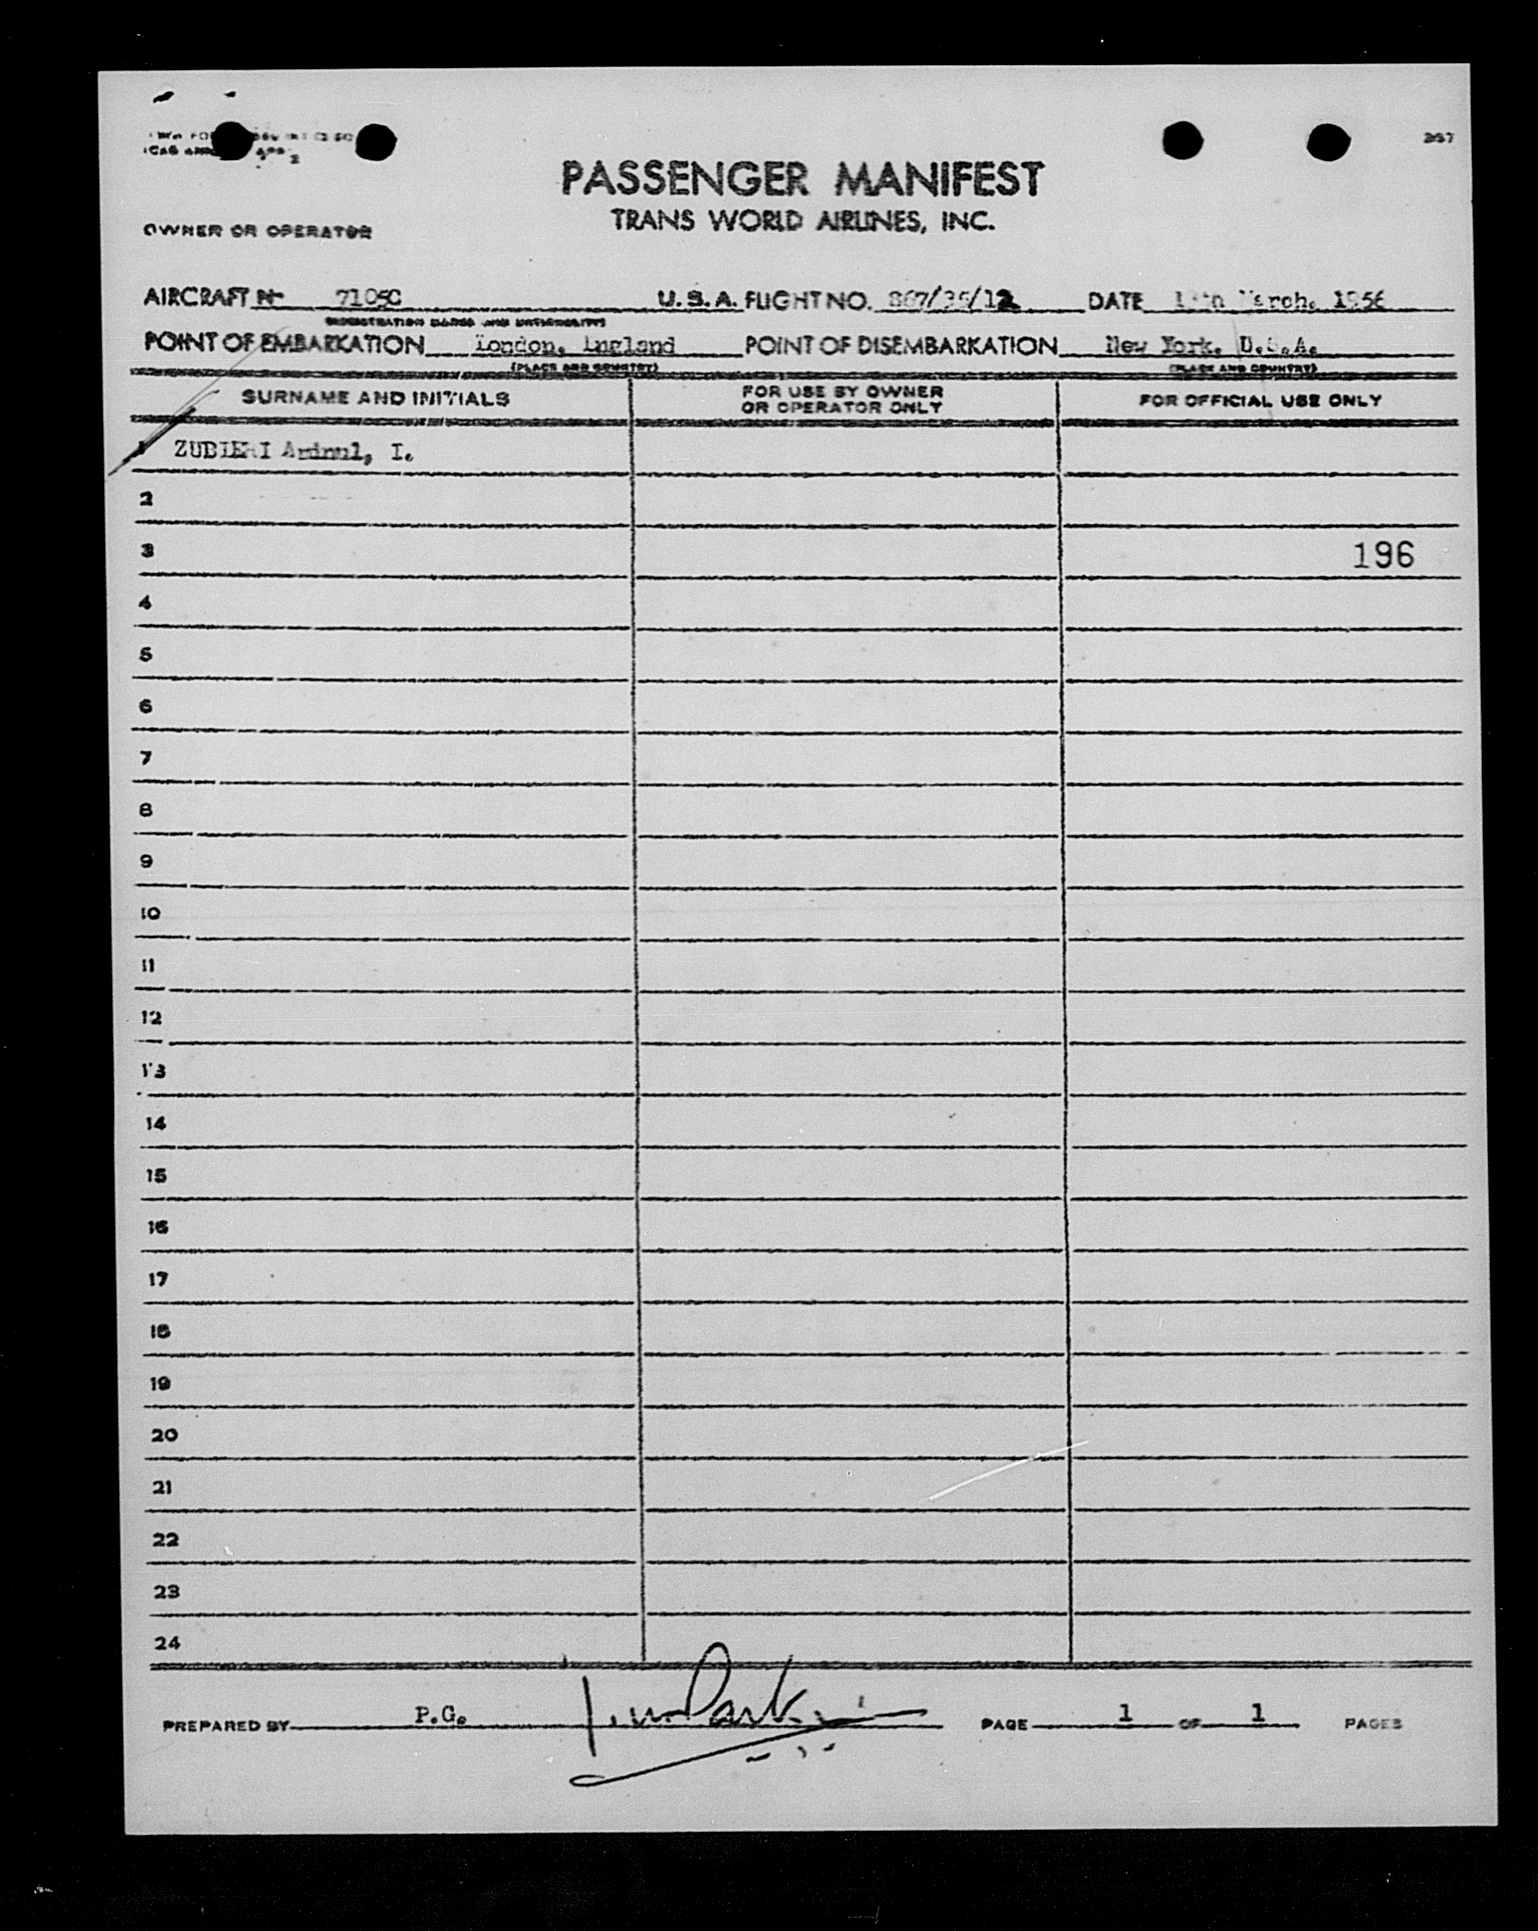 357
PASSENGER MANIFEST
TRANS WORLD AIRLINES, INC.
OWNER OR OPERATOR
AIRCRAFT N- 7105C U.S.A. FLIGHT NO. DATE March, 1956
(REGISTRATION MARKS AND NATIONALITY)
POINT OF EMBARKATION London, England POINT OF DISEMBARKATION New York, U.S.A.
(PLACE AND COUNTRY) (PLACE AND COUNTRY)
SURNAME AND INITIALS FOR USE BY OWNER OR OPERATOR ONLY FOR OFFICIAL USE ONLY
1 ZUBIERI I.
2
3 196
4
5
6
7
8
9
10
11
12
13
14
15
16
17
18
19
20
21
22
23
24
PREPARED BY P.G. PAGE 1 OF 1 PAGES